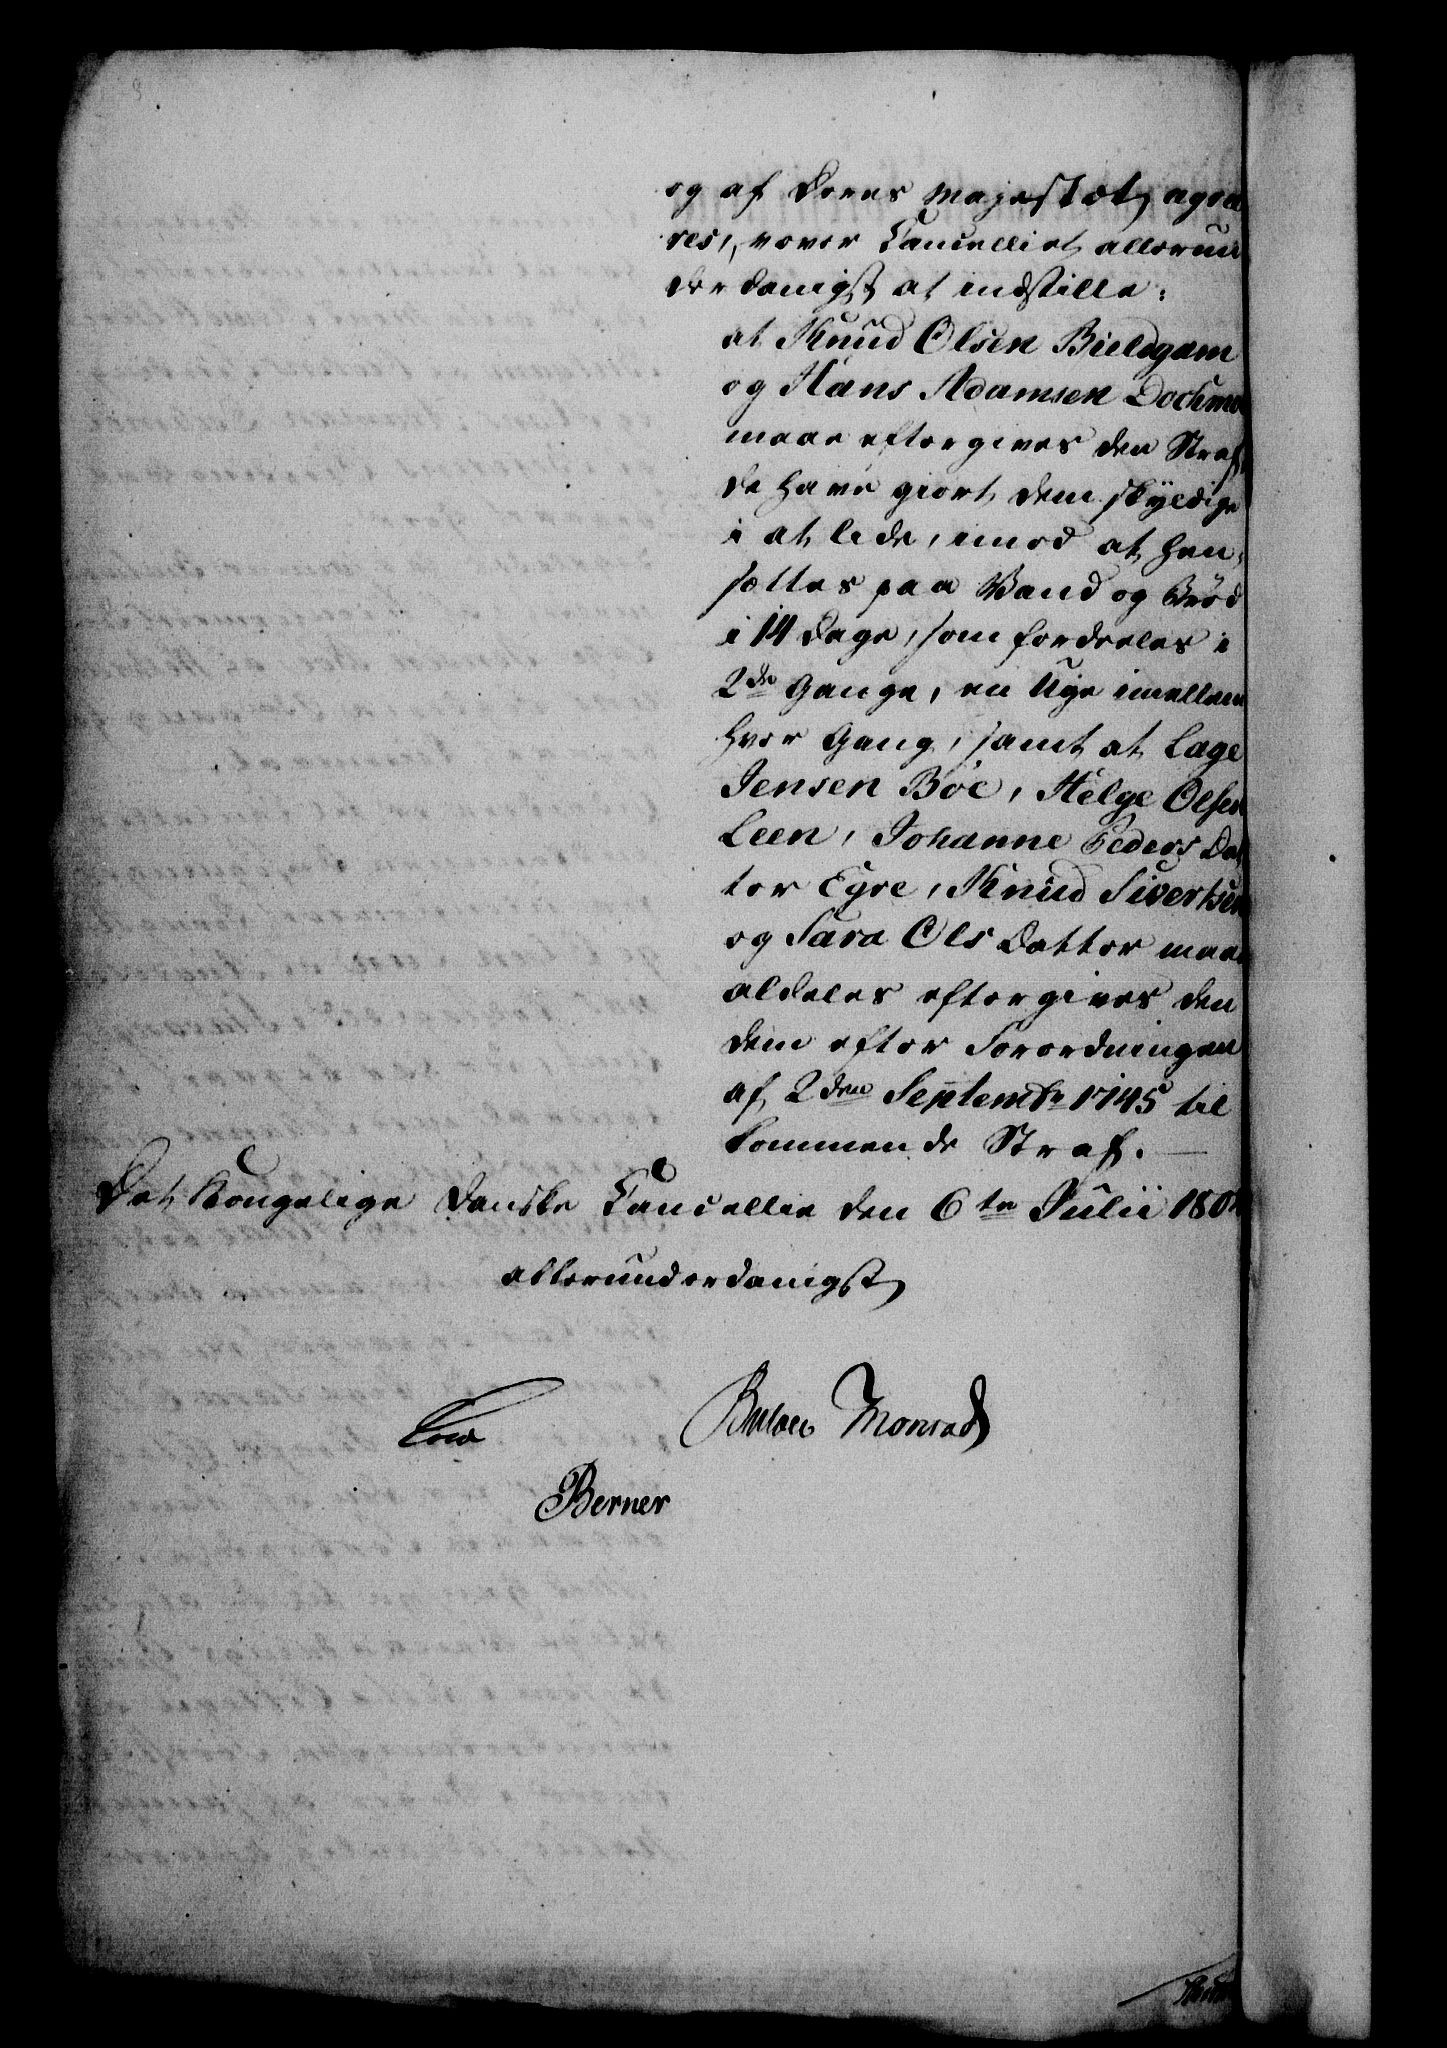 og af Deres Majestæt agree
res, vover Cancelliet allerun
derdanigst at indstille:
at Knud Olsen Bieldgam
og Hans Adamsen
maae eftergives den Straf
de have giort dem skyldige
i at lide, imod at hen,
sættes paa Vand og Brød
i 14 Dage, som fordeeles i
2de Gange, en Uge imellem
hver Gang, samt at Lage
Jensen Böe, Helge Olsen
Leen, Johanne Peders Dat
ter Egre, Knud Sivertsen
og Sara Ols Datter maae
aldeles eftergives den
dem efter Forordningen
af 2den Septembr 1745 til
kommende Straf. —
Det Kongelige Danske Cancellie den 6te Julii
allerunderdanigst
Monrad
Berner